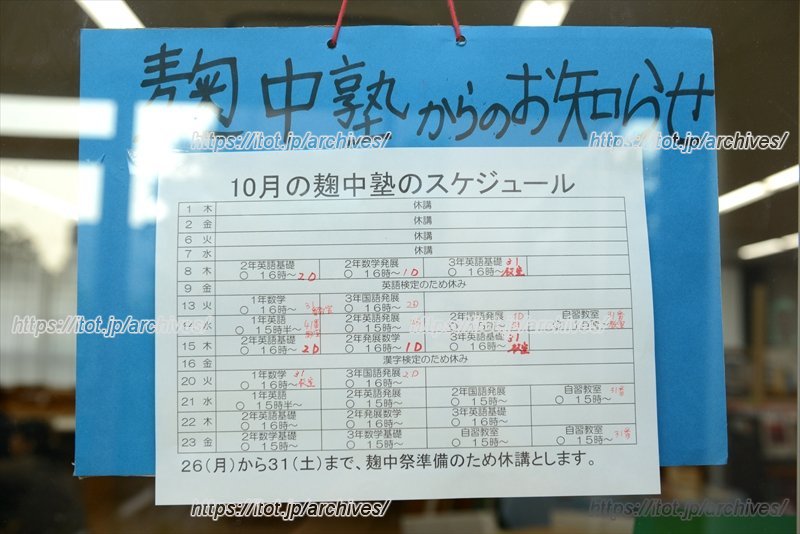 麹中塾からのお知らせ
https://itot.jp/archives/ https://itot.jp/archives/
10月の麹中塾のスケジュール
1 木 休講
2 金 休講
6 火 休講
7 水 休講
8 木 2年英語基礎 ○ 16時〜 2D 2年数学発展 ○ 16時〜 1D 3年英語基礎 ○ 16時〜 31 教室
9 金 英語検定のため休み
13 火 1年数学 ○ 16時〜 31 教室 3年国語発展 ○ 16時〜 2D
水 1年英語 ○ 15時半〜 2年英語発展 ○ 15時〜 2年国語発展 1D ○ 15時〜 自習教室 ○ 15時〜 31番
15 木 2年英語基礎 ○ 16時〜 2D 2年数学発展 ○ 16時〜 1D 3年英語基礎 ○ 16時〜 31 教室
https://itot.jp/archives/ https://itot.jp/archives/ https://itot.jp/archives/
16 金 漢字検定のため休み
20 火 1年数学 ○ 16時〜 31 教室 3年国語発展 ○ 16時〜 2D
21 水 1年英語 ○ 15時半〜 2年英語発展 ○ 15時〜 2年国語発展 ○ 15時〜 自習教室 ○ 15時〜 31番
22 木 2年英語基礎 ○ 16時〜 2年発展数学 ○ 16時〜 3年英語基礎 ○ 16時〜
23 金 2年数学基礎 ○ 15時〜 3年数学基礎 ○ 15時〜 自習教室 ○ 15時〜 自習教室 ○ 15時〜 31番
26(月)から31(土)まで、麹中祭準備のため休講とします。
https://itot.jp/archives/ https://itot.jp/archives/